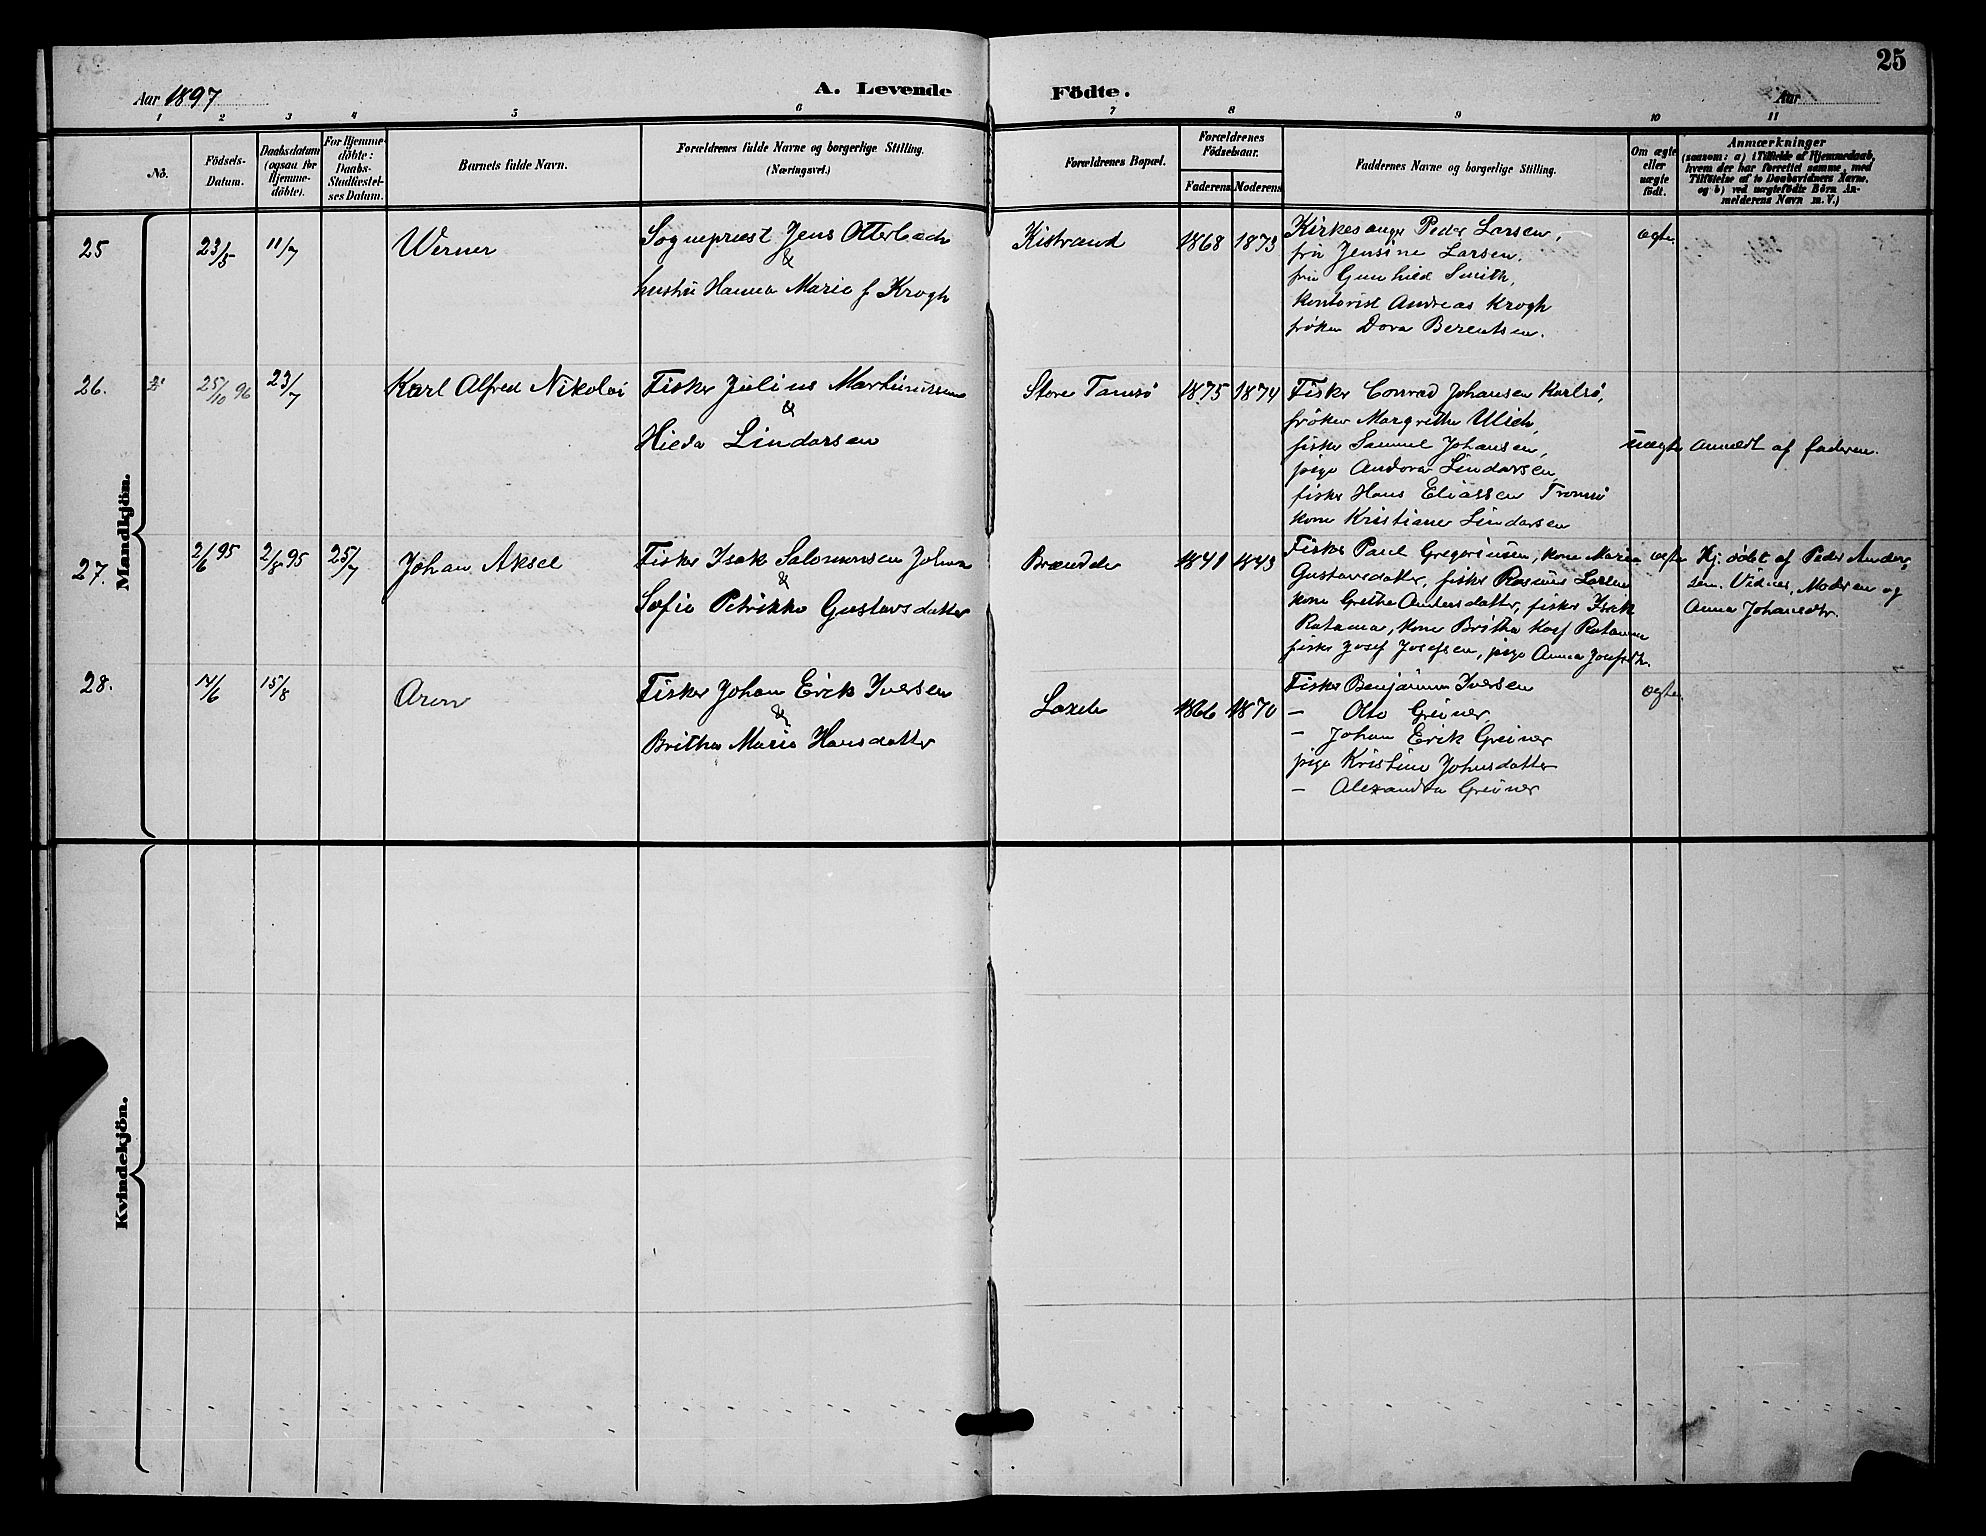 25
Aar 1897
A. Levende Födte.
Aar
1 2 3 4 5 6 7 8 9 10 11
No.
Födsels-Datum.
Daabsdatum (ogsaa for Hjemme-döbte).
For Hjemme-döbte: Daabs-Stadfæstel-ses Datum.
Barnets fulde Navn.
Forældrenes fulde Navne og borgerlige Stilling.
(Næringsvei.)
Forældrenes Bopæl.
Forældrenes Födselsaar.
Faderens Moderens
Faddernes Navne og borgerlige Stilling.
Om ægte eller uægte födt.
Anmærkninger
(saasom: a) i Tilfælde af Hjemmedaab,
hvem der har forrettet samme, med
Tilföielse af to Daabsvidners Navne,
og b) ved uægtefödte Börn An-
melderens Navn m. V.)
Mandkjön.
25 23/5 11/7 Werner
Sogneprest Jens Otterbech
&
hustru Hanna Marie f Krogh
Kistrand 1868 1873
Kirkesanger Peder Larsen,
fru Jensine Larsen.
fru Gunhild Smith,
Kontorist Andreas Krogh
frøken Dora Berentsen.
ægte.
26. 25/10 96 23/7 Karl Alfred Nikolai
Fisker Julius Martinussen
&
Hilda Lindarsen
Store Tamsö 1875 1874
Fisker Conrad Johansen Karlsö,
frøken Margrethe Ulich,
fisker Samuel Johansen,
pige Andora Lindarsen
fisker Hans Eliassen Tromsö
kone Kristiane Lindarsen
uægte anmeldt af faderen.
27. 2/6 95 2/8 95 25/7 Johan Aksel
Fisker Isak Salomonsen Johna
&
Sofie Petrikke Gustavsdatter
Brændelv 1841 1843
Fisker Paul Gregoriusen, kone Maria
Gustavsdatter, fisker Rasmus Larsen
kone Grethe Andersdatter, fisker Isak
Ratama, kone Britha Kaf Ratama
fisker Josef Josefsen, pige Anna Josefsdtr.
ægte
Hj. döbt af Peder Ander-
sen. Vidner, Moderen og
Anna Johansdtr.
28. 14/6 15/8 Aron
Fisker Johan Erik Iversen
&
Britha Maria Hansdatter
Laxelv 1866 1870
Fisker Benjamin Iversen
— Otto Greiner
— Johan Erik Greiner
pige Kristine Johnsdatter
— Alexandra Greiner
ægte.
Kvindekjön.